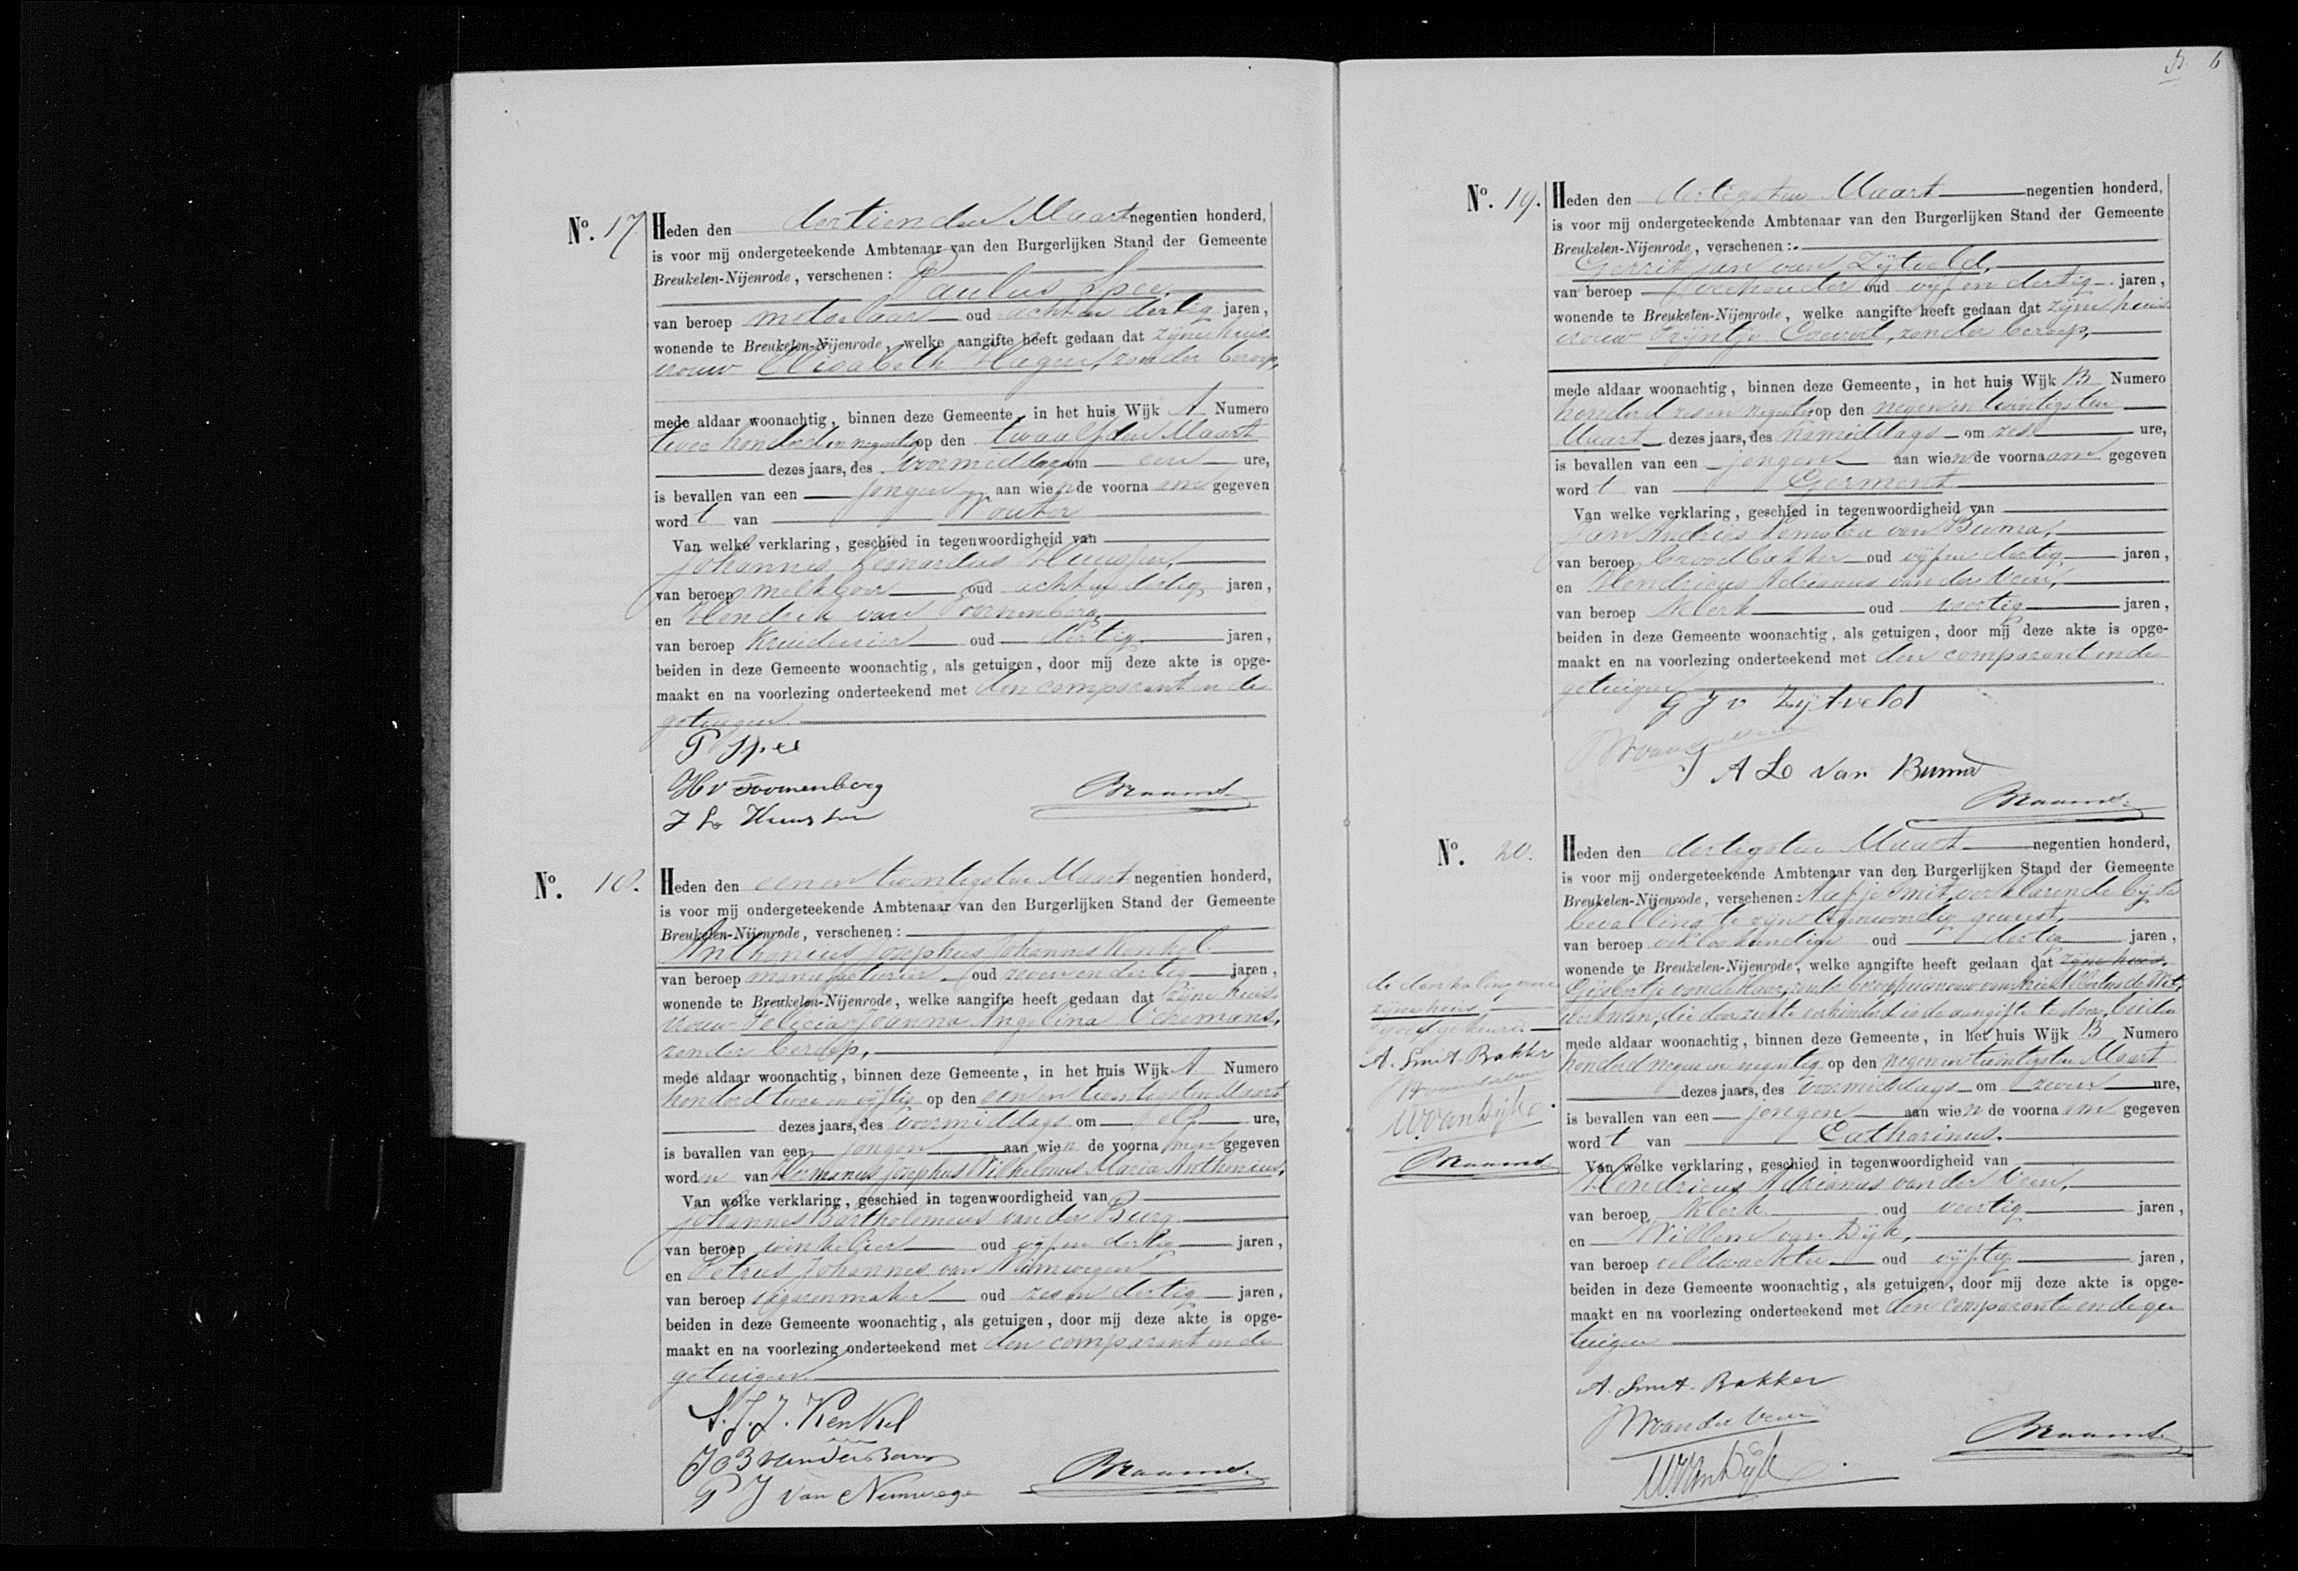 No. 17
Heden den dertienden Maart negentien honderd,
is voor mij ondergeteekende Ambtenaar van den Burgerlijken Stand der Gemeente
Breukelen-Nijenrode, verschenen:
Paulus Spee
van beroep metselaar oud acht en dertig jaren,
wonende te Breukelen-Nijenrode, welke aangifte heeft gedaan dat zijne huis
vrouw Elisabeth Hagen, zonder beroep,
mede aldaar woonachtig, binnen deze Gemeente, in het huis Wijk A Numero
twee honderd en negentig op den twaalfden Maart
dezes jaars, des voormiddags om een ure,
is bevallen van een jongen aan wien de voornaam gegeven
wordt van Wouter
Van welke verklaring, geschied in tegenwoordigheid van
Johannes Leonardus
van beroep melkboer oud acht en dertig jaren,
en Hendrik van Toornenberg
van beroep Kruidenier oud dertig jaren,
beiden in deze Gemeente woonachtig, als getuigen, door mij deze akte is opge-
maakt en na voorlezing onderteekend met den comparant en de
getuigen.
P Spee
H v Toornenberg
J L
No. 18.
Heden den een en twintigsten Maart negentien honderd,
is voor mij ondergeteekende Ambtenaar van den Burgerlijken Stand der Gemeente
Breukelen-Nijenrode, verschenen:
Anthonius Josephus Johannes Kenkel
van beroep manufacturier oud zeven en dertig jaren,
wonende te Breukelen-Nijenrode, welke aangifte heeft gedaan dat zijne huis
vrouw Felicia Joanna Angelina
zonder beroep,
mede aldaar woonachtig, binnen deze Gemeente, in het huis Wijk A Numero
honderd twee en vijftig op den een en twintigsten Maart
dezes jaars, des voormiddags om elf ure,
is bevallen van een jongen aan wien de voornamen gegeven
worden van Hermanus Josephus Wilhelmus Maria Anthonius,
Van welke verklaring, geschied in tegenwoordigheid van
Johannes Bartholomeus van der Burg
van beroep winkelier oud vijf en dertig jaren,
en Petrus Johannes van Nimwegen
van beroep sigarenmaker oud zes en dertig jaren,
beiden in deze Gemeente woonachtig, als getuigen, door mij deze akte is opge-
maakt en na voorlezing onderteekend met den comparant en de
getuigen.
A. J. J. Kenkel
J B van der Burg
P J van Nimwege
6
No. 19.
Heden den dertigsten Maart negentien honderd,
is voor mij ondergeteekende Ambtenaar van den Burgerlijken Stand der Gemeente
Breukelen-Nijenrode, verschenen:
Gerrit Jan van Zijtveld,
van beroep veehouder oud vijf en dertig jaren,
wonende te Breukelen-Nijenrode, welke aangifte heeft gedaan dat zijne huis
vrouw Trijntje, zonder beroep,
mede aldaar woonachtig, binnen deze Gemeente, in het huis Wijk B Numero
honderd zes en negentig op den negen en twintigsten
Maart dezes jaars, des namiddags om zes ure,
is bevallen van een jongen aan wien de voornaam gegeven
wordt van Germent
Van welke verklaring, geschied in tegenwoordigheid van
Jan Andries Lemstra van Buma,
van beroep broodbakker oud vijf en dertig jaren,
en Hendricus Adrianus van der Veen,
van beroep klerk oud veertig jaren,
beiden in deze Gemeente woonachtig, als getuigen, door mij deze akte is opge-
maakt en na voorlezing onderteekend met den comparant en de
getuigen
G J v Zijtveld
J A L van Buma
No. 20.
Heden den dertigsten Maart negentien honderd,
is voor mij ondergeteekende Ambtenaar van den Burgerlijken Stand der Gemeente
Breukelen-Nijenrode, verschenen: Aafje Smit, verklarende bij de
bevalling te zijn tegenwoordig geweest,
van beroep verloskundige oud dertig jaren,
wonende te Breukelen-Nijenrode, welke aangifte heeft gedaan dat zijne huis
Gijsbertje van de Haar, zonder beroep, huisvrouw van Albertus de Wit,
werkman, die door ziekte verhinderd is de aangifte te doen, beiden
mede aldaar woonachtig, binnen deze Gemeente, in het huis Wijk B Numero
honderd negen en negentig op den negen en twintigsten Maart
dezes jaars, des voormiddags om zeven ure,
is bevallen van een jongen aan wien de voornaam gegeven
wordt van Catharinus.
Van welke verklaring, geschied in tegenwoordigheid van
Hendricus Adrianus van der Veen,
van beroep klerk oud veertig jaren,
en Willem van Dijk,
van beroep veldwachter oud vijftig jaren,
beiden in deze Gemeente woonachtig, als getuigen, door mij deze akte is opge-
maakt en na voorlezing onderteekend met den comparante en de ge
tuigen
A. Smit. Bakker
van der Veen
W. van Dijk
de doorhaling van
zijne huis
goedgekeurd
A. Smit. Bakker
W. van Dijk